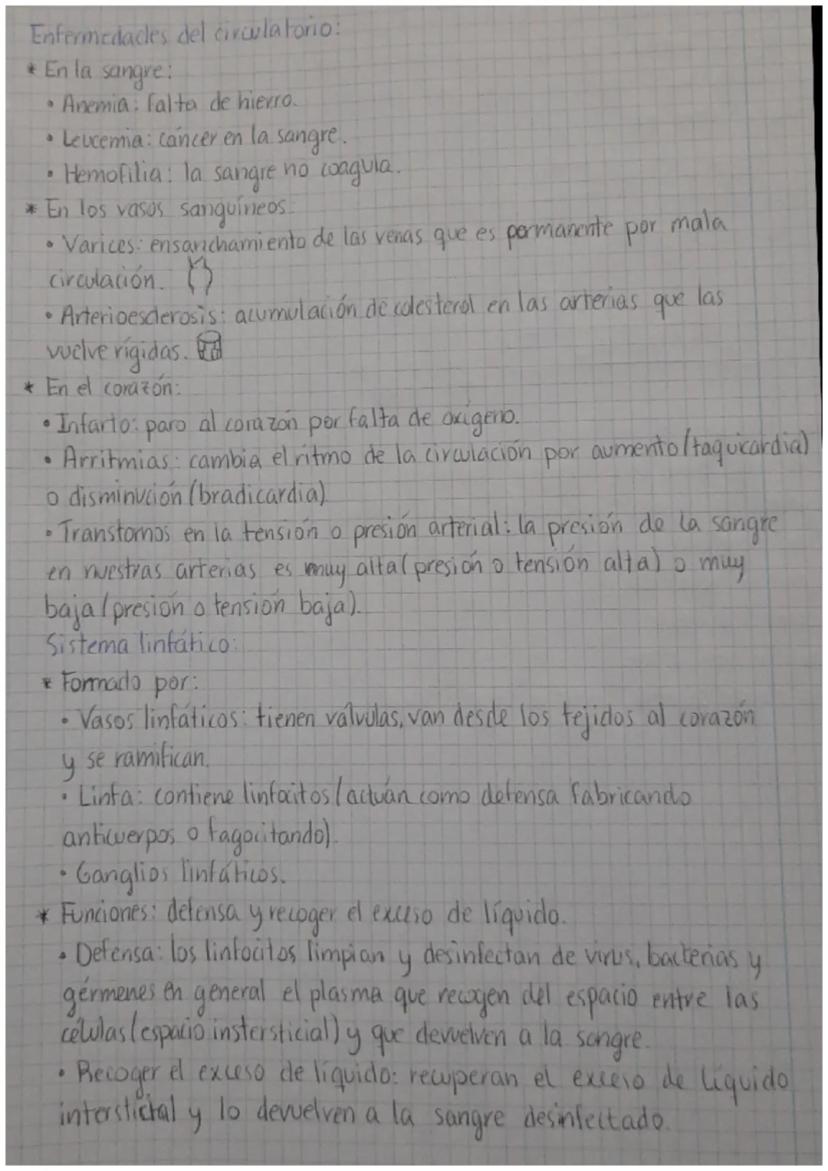 Enfermedades del circulatorio:
* En la sangre:
• Anemia: falta de hierro.
• Leucemia: cáncer en la sangre.
• Hemofilia: la sangre no coagula.
* En los vasos sanguíneos:
• Varices: ensanchamiento de las venas que es permanente por mala
circulación.
• Arterioesclerosis: acumulación de colesterol en las arterias que las
vuelve rígidas.
* En el corazón:
• Infarto: paro al corazón por falta de oxígeno.
• Arritmias: cambia el ritmo de la circulación por aumento (taquicardia)
o disminución (bradicardia)
• Transtornos en la tensión o presión arterial: la presión de la sangre
en nuestras arterias es muy alta (presión o tensión alta) o muy
baja (presión o tensión baja).
Sistema linfático:
* Formado por:
• Vasos linfáticos: tienen válvulas, van desde los tejidos al corazón
y se ramifican.
• Linfa: contiene linfocitos (actuán como defensa fabricando
anticuerpos o fagocitando).
• Ganglios linfáticos.
* Funciones: defensa y recoger el exceso de líquido.
• Defensa: los linfocitos limpian y desinfectan de virus, bacterias y
gérmenes en general el plasma que recogen del espacio entre las
células (espacio instersticial) y que devuelven a la sangre.
• Recoger el exceso de líquido: recuperan el exceso de líquido
intersticial y lo devuelven a la sangre desinfectado.